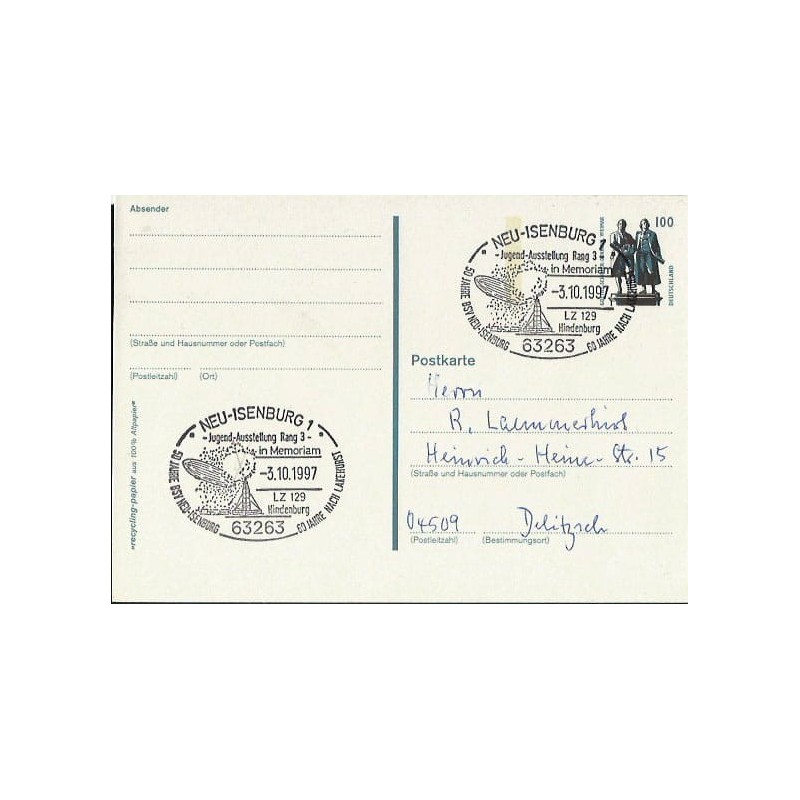 Absender
(Straße und Hausnummer oder Postfach)
(Postleitzahl) (Ort)
»recycling-papier aus 100% Altpapier«
NEU-ISENBURG 1
- Jugend-Ausstellung Rang 3 -
in Memoriam
-3.10.1997
LZ 129
Hindenburg
63263
50 JAHRE BSV NEU-ISENBURG
60 JAHRE NACH LAKEHURST
NEU-ISENBURG 1
- Jugend-Ausstellung Rang 3
in Memoriam
-3.10.1997
LZ 129
Hindenburg
63263
50 JAHRE BSV NEU-ISENBURG
60 JAHRE NACH
100
DEUTSCHLAND
Postkarte
Herrn
R. Laemmerhirt
Heinrich-Heine-Str. 15
(Straße und Hausnummer oder Postfach)
04509 Delitzsch
(Postleitzahl) (Bestimmungsort)